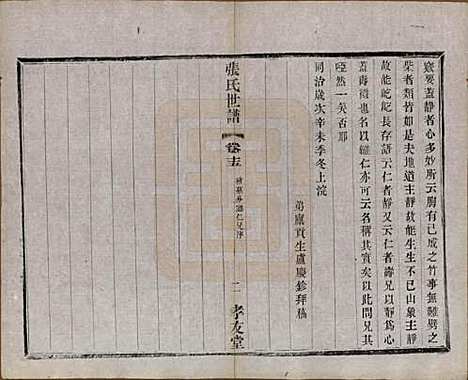 竅要蓋靜者心多妙所云胸有已成之竹事無難劈之
柴者類竹如是夫地道主靜故能生生不已山象主靜
故能屹屹長存語云仁者靜又云仁者壽兄以靜爲心
蓋壽徵也名以繼仁亦可云名稱其實矣以此問兄其
啞然一笑否耶
同治歲次辛未季冬上浣
弟廩貢生盧慶鉁拜稿
張氏世譜
卷十五
繼仁兄序
二
孝友堂